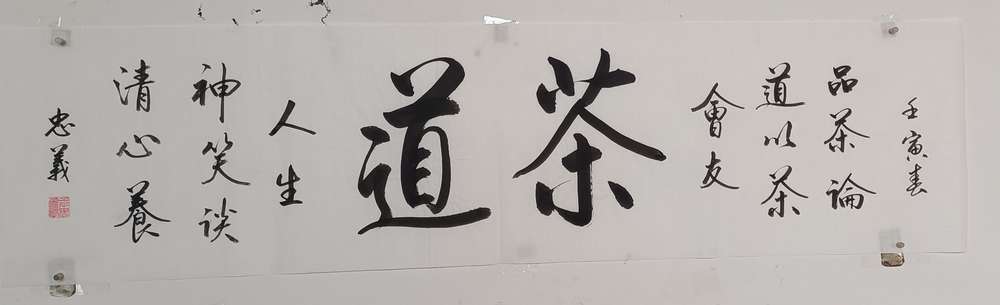 壬寅春
品茶論
道以茶
會友
茶道
清心養
神笑谈
人生
忠義